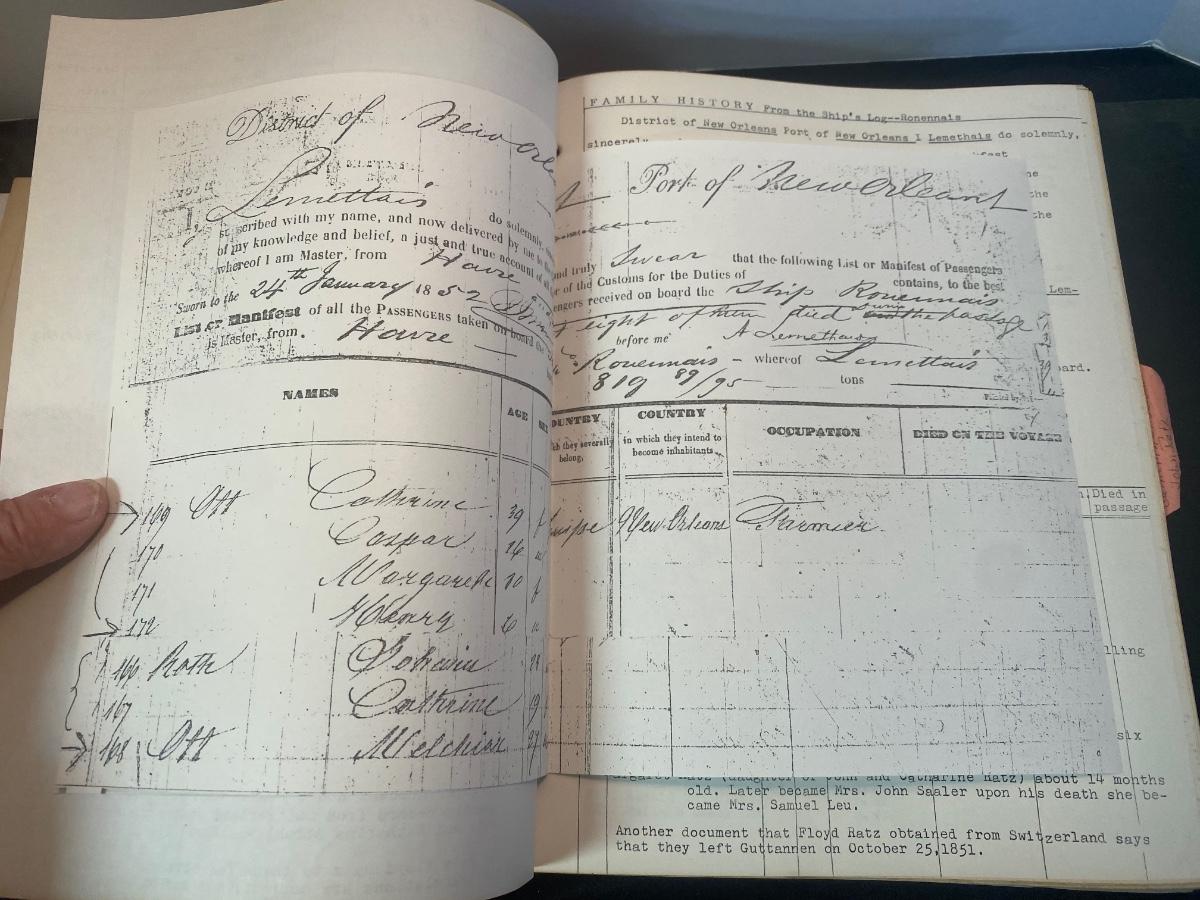 District of New Orle
Lemettais do solemnly,
scribed with my name, and now delivered by me to the
of my knowledge and belief, a just and true account of all
whereof I am Master, from Havre
Sworn to the 24th January 1852
List or Manifest of all the PASSENGERS taken on board the
is Master, from. Havre
NAMES
AGE
169 Ott Cathrine 39 f
170 Caspar
171 Margareth 10 f
172 Henry 6
166 Roth
167 Cathrine 19
168 Ott Melchior 27
FAMILY HISTORY From the Ship's Log--Ronennais
District of New Orleans Port of New Orleans I Lemethais do solemnly,
sincerely
Port of New Orleans
and truly Swear that the following List or Manifest of Passengers
or of the Customs for the Duties of contains, to the best
engers received on board the Ship Rouennais
eight of them died during the passage
before me A Lemethais
Rouennais - whereof Lemettais
819 89/95 tons
COUNTRY
they severally
belong,
COUNTRY
in which they intend to
become inhabitants.
OCCUPATION
DIED ON THE VOYAGE
New Orleans Farmer
Lem-
ard.
Died in
passage
lling
six
(daughter of John and Catharine Ratz) about 14 months
old. Later became Mrs. John Saaler upon his death she be-
came Mrs. Samuel Leu.
Another document that Floyd Ratz obtained from Switzerland says
that they left Guttannen on October 25,1851.